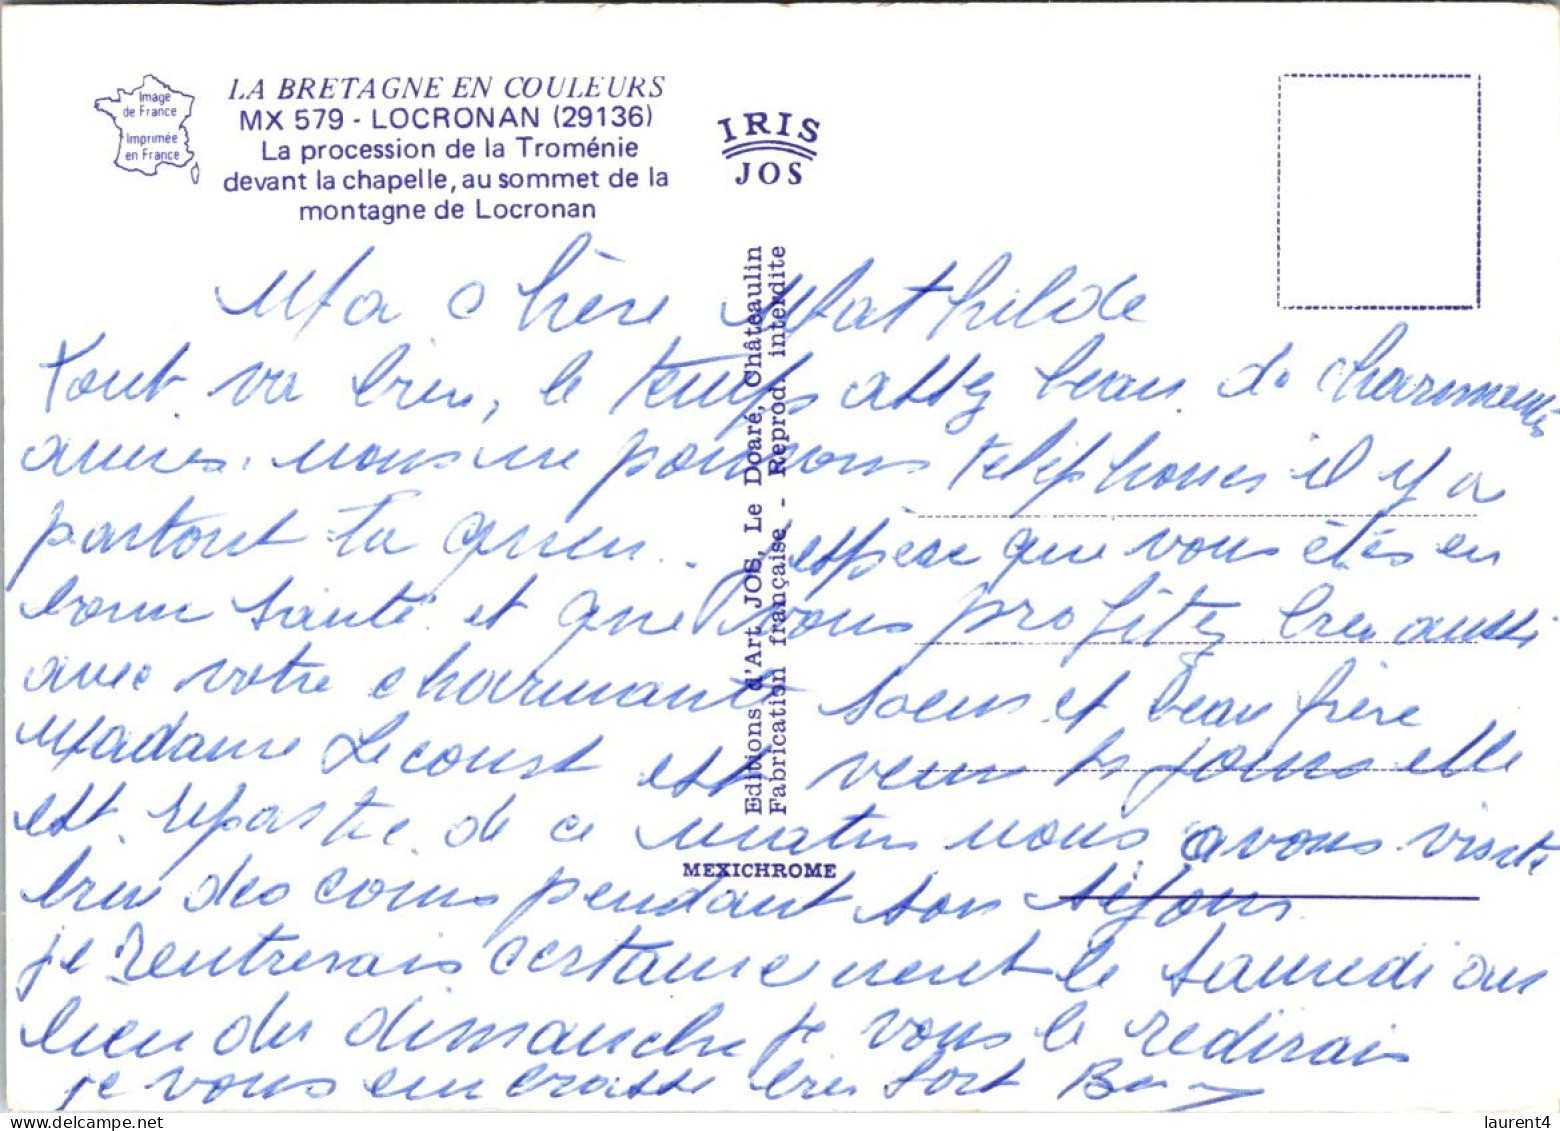 Image
de France
Imprimée
en France
LA BRETAGNE EN COULEURS
MX 579 - LOCRONAN (29136)
La procession de la Troménie
devant la chapelle, au sommet de la
montagne de Locronan
IRIS
JOS
Editions d'Art JOS, Le Doaré, Châteaulin
Fabrication française - Reprod. interdite
MEXICHROME
Ma chère Mathilde
Tout va bien, le temps assez beau de charmantes
amies. nous ne pouvons téléphoner il y a
partout la queue. espère que vous étés en
bonne santé et que vous profitez bien aussi
avec votre charmante soeur et beau frère
Madame Lecourt est venu jours elle
est repartie de ce matin nous avons visité
bien des coins pendant son séjour
je rentrerais certainement le samedi au
lieu du dimanche je vous le redirais
je vous embrasse bien fort
laurent4